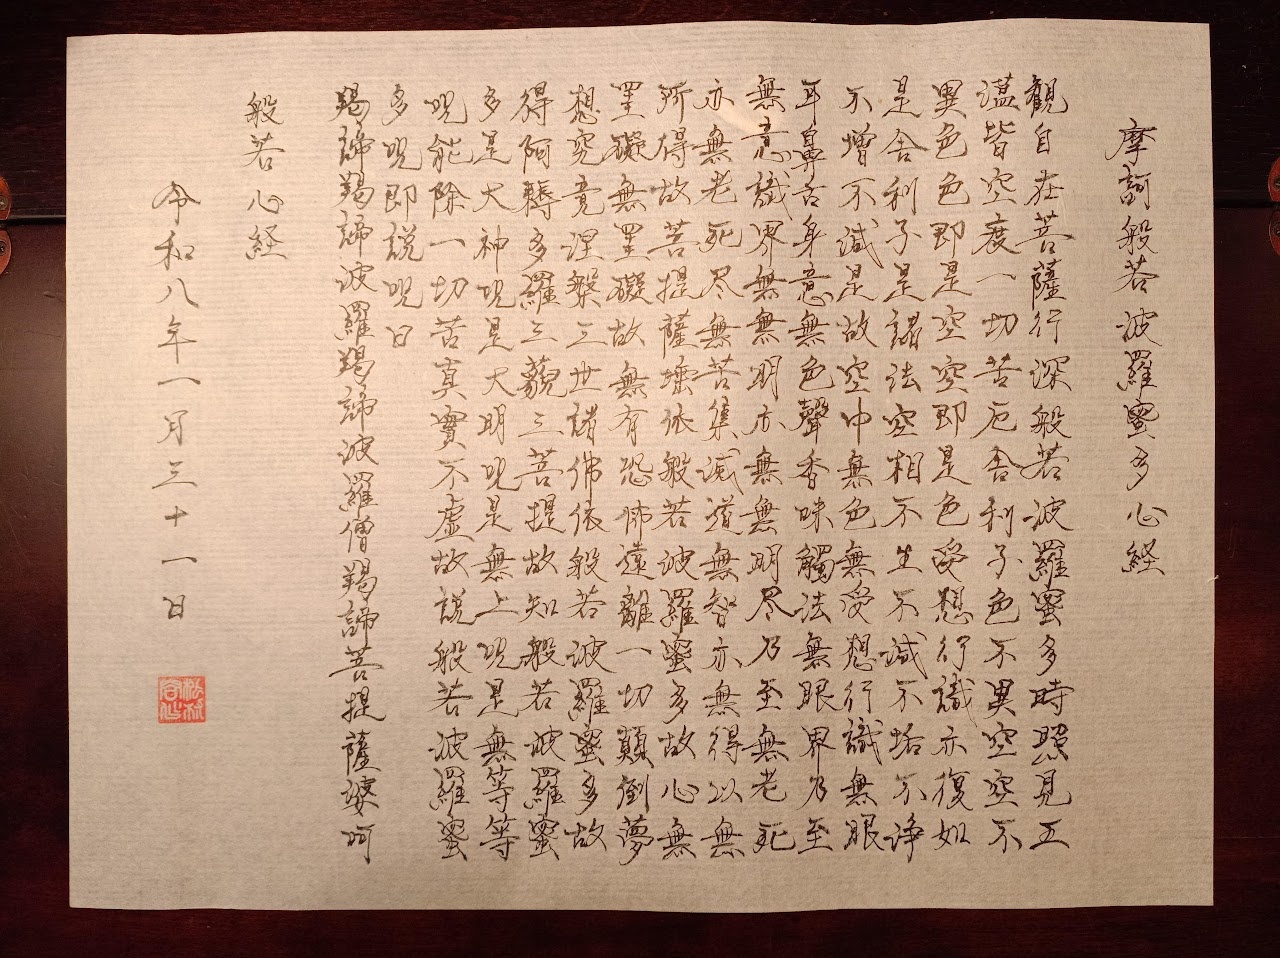 摩訶般若波羅蜜多心経
観自在菩薩行深般若波羅蜜多時照見五
蘊皆空度一切苦厄舎利子色不異空空不
異色色即是空空即是色受想行識亦復如
是舎利子是諸法空相不生不滅不垢不浄
不増不減是故空中無色無受想行識無眼
耳鼻舌身意無色聲香味觸法無眼界乃至
無意識界無無明亦無無明尽乃至無老死
亦無老死尽無苦集滅道無智亦無得以無
所得故菩提薩埵依般若波羅蜜多故心無
罣礙無罣礙故無有恐怖遠離一切顛倒夢
想究竟涅槃三世諸佛依般若波羅蜜多故
得阿耨多羅三藐三菩提故知般若波羅蜜
多是大神呪是大明呪是無上呪是無等等
呪能除一切苦真實不虚故説般若波羅蜜
多呪即説呪曰
羯諦羯諦波羅羯諦波羅僧羯諦菩提薩婆呵
般若心経
令和八年一月三十一日